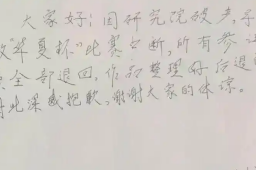 大家好！因研究院破产，录
故"华夏杯"比赛中断，所有参
全部退回，作品整理好后退
对此深感抱歉，谢谢大家的体谅。